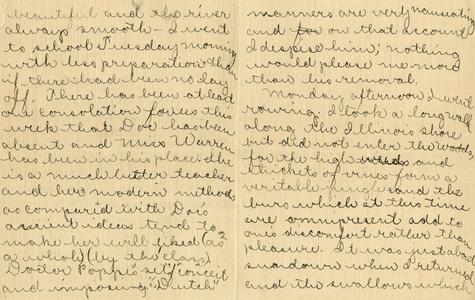 beautiful and the river
always smooth - I went
to school Tuesday morning
with less preparation than
if there had been no day
off. There has been at least
one consolation for us this
week that Doc has been
absent and Miss Warren
has been in his place. She
is a much better teacher
and her modern methods
as compared with Doc's
ancient ideas tend to
make her well liked (as
a whole) by the class.
Doctor Poppe's set "conceit
and imposing "Dutch"
manners are very nauseating
and on that account
I despise him; nothing
would please me more
than his removal.
Monday afternoon I went
rowing, I took a long walk
along the Illinois shore
but did not enter the woods,
for the high weeds and
thickets of vines form a
veritable jungle and the
burs which at this time
are omnipresent add to
one's discomfort rather than
pleasure. It was just about
sundown when I returned
and the swallows which